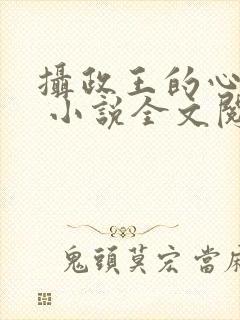 攝政王的心
小說全文閱
鬼頭莫宏 當